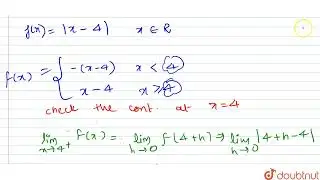 f(x) = |x - 4| x ∈ R
f(x) = { -(x-4) x < 4
x - 4 x ≥ 4
check the cont. at x = 4
lim x→4+ f(x) = lim h→0 f(4+h) ⇒ lim h→0 |4+h-4|
doubtnut